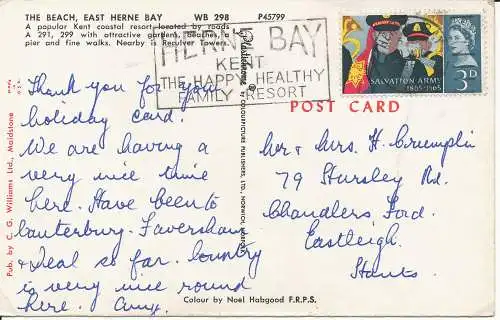 THE BEACH, EAST HERNE BAY WB 298 P45799
A popular Kent coastal resort, located by roads
A 291, 299 with attractive gardens, beaches, a
pier and fine walks. Nearby is Reculver Towers.
HERNE BAY
KENT
THE HAPPY HEALTHY
FAMILY RESORT
SALVATION ARMY
1865-1965
3D
POST CARD
Thank you for your
holiday card.
We are having a
very nice time
here. Have been to
Canterbury. Faversham
& Deal so far. Country
is very nice round
here. Amy.
Mr & Mrs. H. Crumplin
79 Stursley Rd.
Chandlers Ford.
Eastleigh.
Hants.
Pub. by C. G. Williams Ltd., Maidstone
Plastichrome ® by COLOURPICTURE PUBLISHERS, LTD.,
Colour by Noel Habgood F.R.P.S.